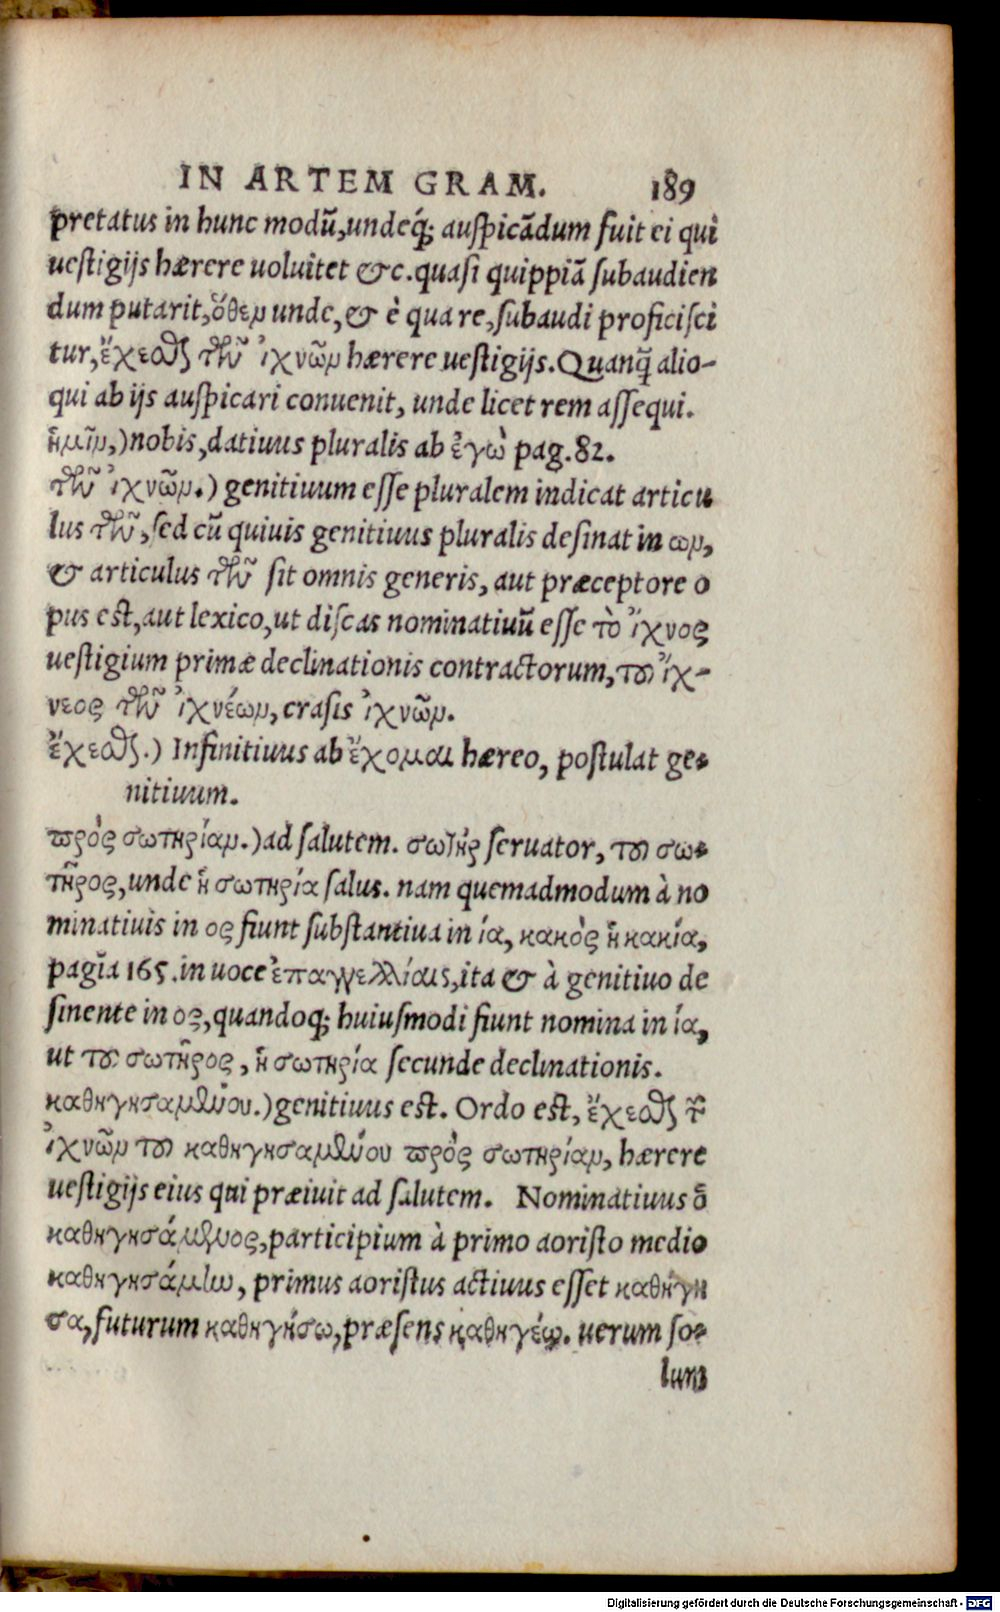 IN ARTEM GRAM. 189
pretatus in hunc modū, undeq́; auspicādum fuit ei qui
uestigijs hærere uoluit et &c. quasi quippiā subaudien
dum putarit, ὅθεν unde, & è qua re, subaudi proficisci
tur, ἔχεσθαι τῶν ἰχνῶν hærere uestigijs. Quanq̃ alio-
qui ab ijs auspicari conuenit, unde licet rem assequi.
ἡμῖν,) nobis, datiuus pluralis ab ἐγὼ pag. 82.
τῶν ἰχνῶν.) genitiuum esse pluralem indicat articu
lus τῶν, sed cū quiuis genitiuus pluralis desinat in ων,
& articulus τῶν sit omnis generis, aut præceptore o
pus est, aut lexico, ut discas nominatiuū esse τὸ ἴχνος
uestigium primæ declinationis contractorum, τοῦ ἴχ-
νεος τῶν ἰχνέων, crasis ἰχνῶν.
ἔχεσθαι.) Infinitiuus ab ἔχομαι hæreo, postulat ge-
nitiuum.
πρὸς σωτηρίαν.) ad salutem. σωτὴρ seruator, τοῦ σω-
τῆρος, unde ἡ σωτηρία salus. nam quemadmodum à no
minatiuis in ος fiunt substantiua in ία, κακὸς ἡ κακία,
pagīa 165. in uoce ἐπαγγελλίαις, ita & à genitiuo de
sinente in ος, quandoq; huiusmodi fiunt nomina in ία,
ut τοῦ σωτῆρος, ἡ σωτηρία secunde declinationis.
καθηγησαμένου.) genitiuus est. Ordo est, ἔχεσθαι τῶν
ἰχνῶν τοῦ καθηγησαμένου πρὸς σωτηρίαν, hærere
uestigijs eius qui præiuit ad salutem. Nominatiuus ὁ
καθηγησάμενος, participium à primo aoristo medio
καθηγησάμην, primus aoristus actiuus esset καθήγη
σα, futurum καθηγήσω, præsens καθηγέω. uerum so-
lum
Digitalisierung gefördert durch die Deutsche Forschungsgemeinschaft - DFG